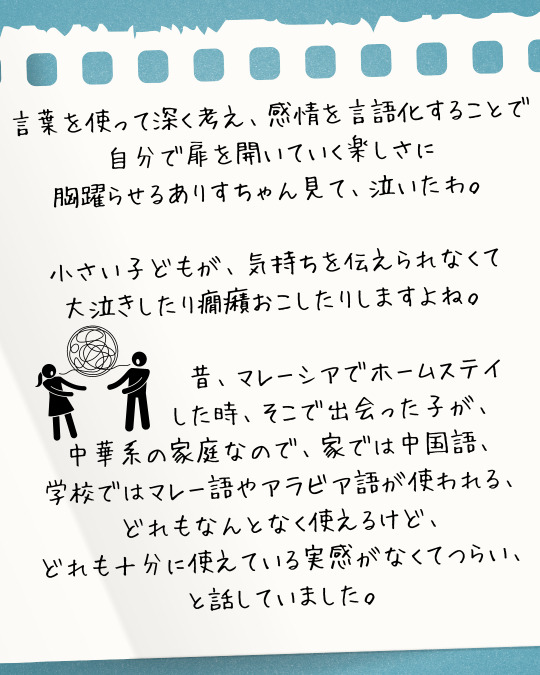 言葉を使って深く考え、感情を言語化することで
自分で扉を開いていく楽しさに
胸躍らせるありすちゃん見て、泣いたわ。
小さい子どもが、気持ちを伝えられなくて
大泣きしたり癇癪おこしたりしますよね。
昔、マレーシアでホームステイ
した時、そこで出会った子が、
中華系の家庭なので、家では中国語、
学校ではマレー語やアラビア語が使われる、
どれもなんとなく使えるけど、
どれも十分に使えている実感がなくてつらい、
と話していました。